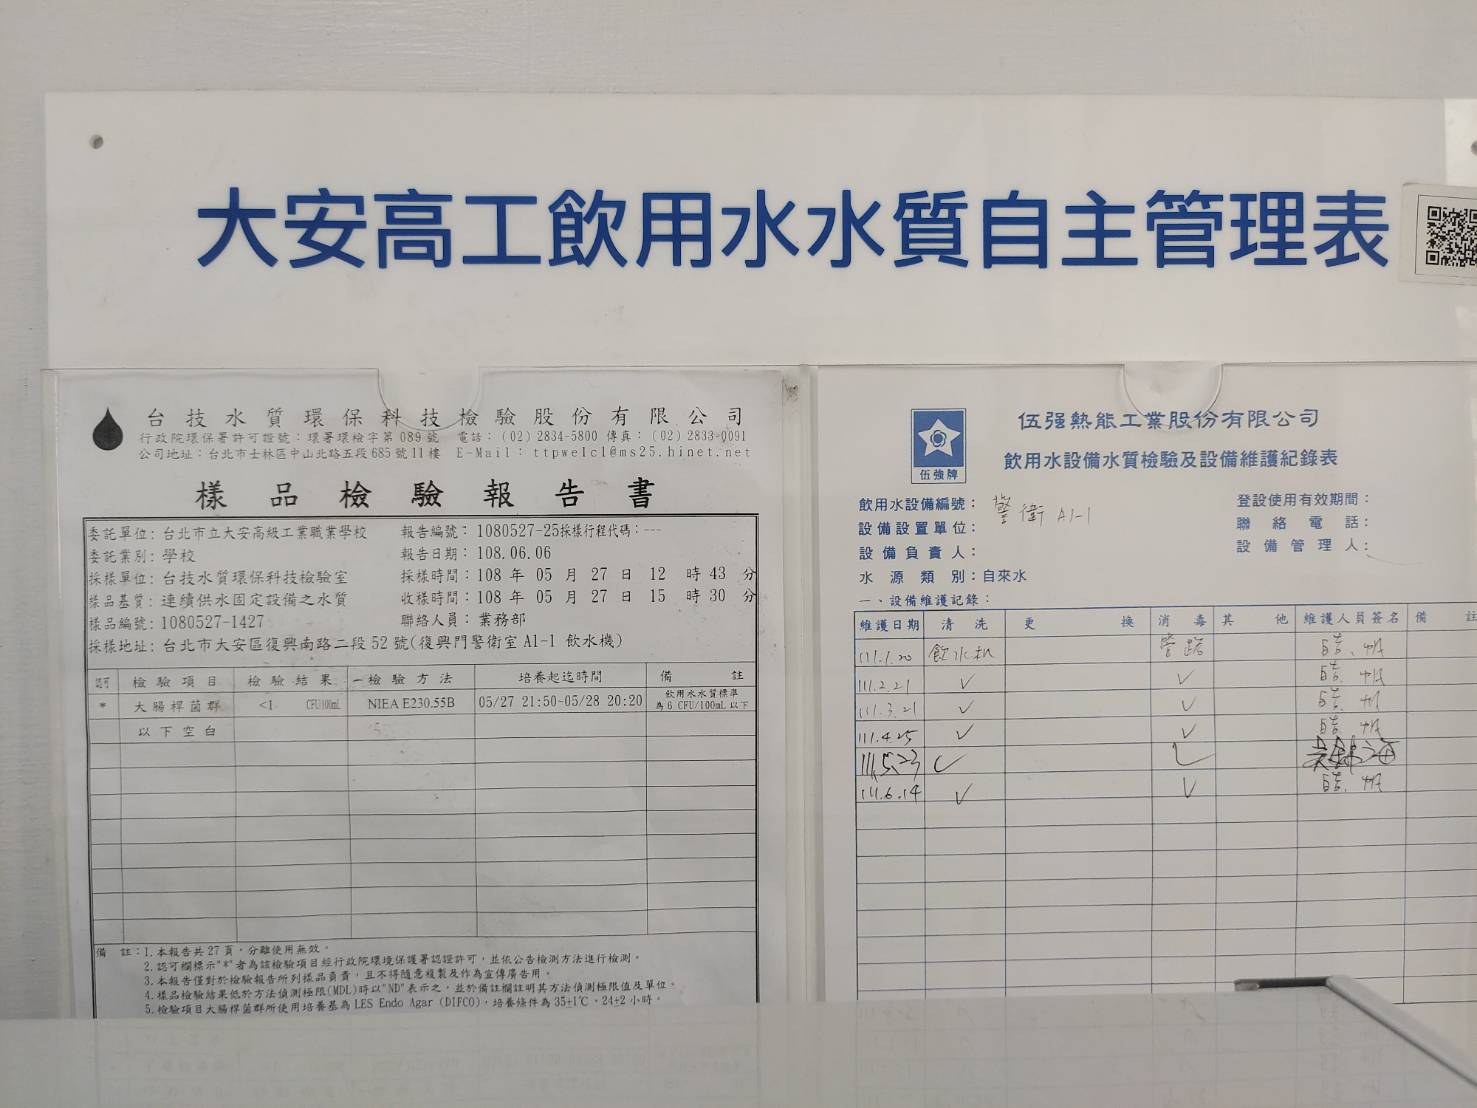 大安高工飲用水水質自主管理表
台技水質環保科技檢驗股份有限公司
行政院環保署許可證號：環署環檢字第 089 號 電話：(02) 2834-5800 傳真：(02) 2833-0091
公司地址：台北市士林區中山北路五段 685 號 11 樓 E-Mail：ttpwelcl@ms25.hinet.net
樣品檢驗報告書
委託單位：台北市立大安高級工業職業學校 報告編號：1080527-25採樣行程代碼：---
委託業別：學校 報告日期：108.06.06
採樣單位：台技水質環保科技檢驗室 採樣時間：108 年 05 月 27 日 12 時 43 分
樣品基質：連續供水固定設備之水質 收樣時間：108 年 05 月 27 日 15 時 30 分
樣品編號：1080527-1427 聯絡人員：業務部
採樣地址：台北市大安區復興南路二段 52 號(復興門警衛室 A1-1 飲水機)
認可 檢驗項目 檢驗結果 檢驗方法 培養起迄時間 備註
* 大腸桿菌群 <1 CFU/100mL NIEA E230.55B 05/27 21:50~05/28 20:20 飲用水水質標準
為 6 CFU/100mL 以下
以下空白
備註：1.本報告共 27 頁，分離使用無效。
2.認可欄標示"*"者為該檢驗項目經行政院環境保護署認證許可，並依公告檢測方法進行檢測。
3.本報告僅對於檢驗報告所列樣品負責，且不得隨意複製及作為宣傳廣告用。
4.樣品檢驗結果低於方法偵測極限(MDL)時以"ND"表示之，並於備註欄註明其方法偵測極限值及單位。
5.檢驗項目大腸桿菌群所使用培養基為 LES Endo Agar (DIFCO)，培養條件為 35±1℃，24±2 小時。
伍強牌
伍强熱能工業股份有限公司
飲用水設備水質檢驗及設備維護紀錄表
飲用水設備編號：警衛 A1-1 登設使用有效期間：
設備設置單位： 聯絡電話：
設備負責人： 設備管理人：
水源類別：自來水
一、設備維護記錄：
維護日期 清洗 更換 消毒 其他 維護人員簽名 備註
111.1.20 飲水机 管路
111.2.21 ✓ ✓
111.3.21 ✓ ✓
111.4.25 ✓ ✓
111.5.23 ✓ ✓
111.6.14 ✓ ✓